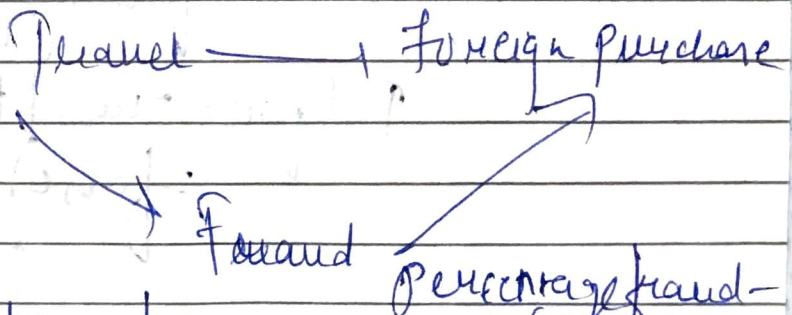 Travel Foreign purchase
Fraud
percentage fraud-